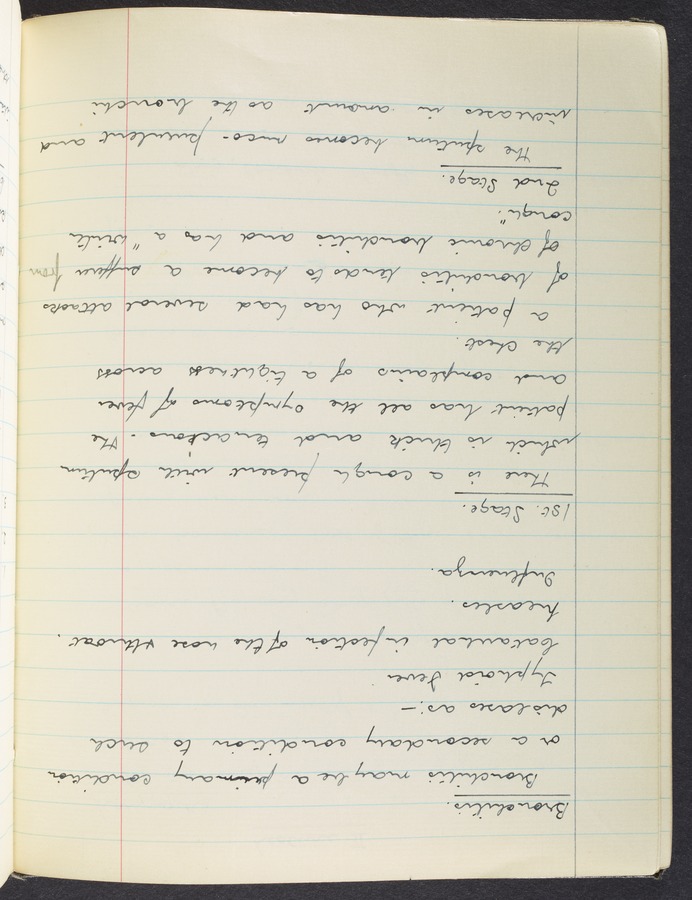 Bronchitis.
Bronchitis may be a primary condition
or a secondary condition to such
diseases as :-
Typhoid Fever
Catarrhal infection of the nose & throat.
Measles.
Influenza.
1st. Stage.
There is a cough present with sputum
which is thick and tenacious. The
patient has all the symptoms of fever
and complains of a tightness across
the chest.
A patient who has had several attacks
of bronchitis tends to become a sufferer from
of chronic bronchitis and has a "winter
cough".
2nd Stage.
The sputum becomes muco-purulent and
increases in amount as the bronchi